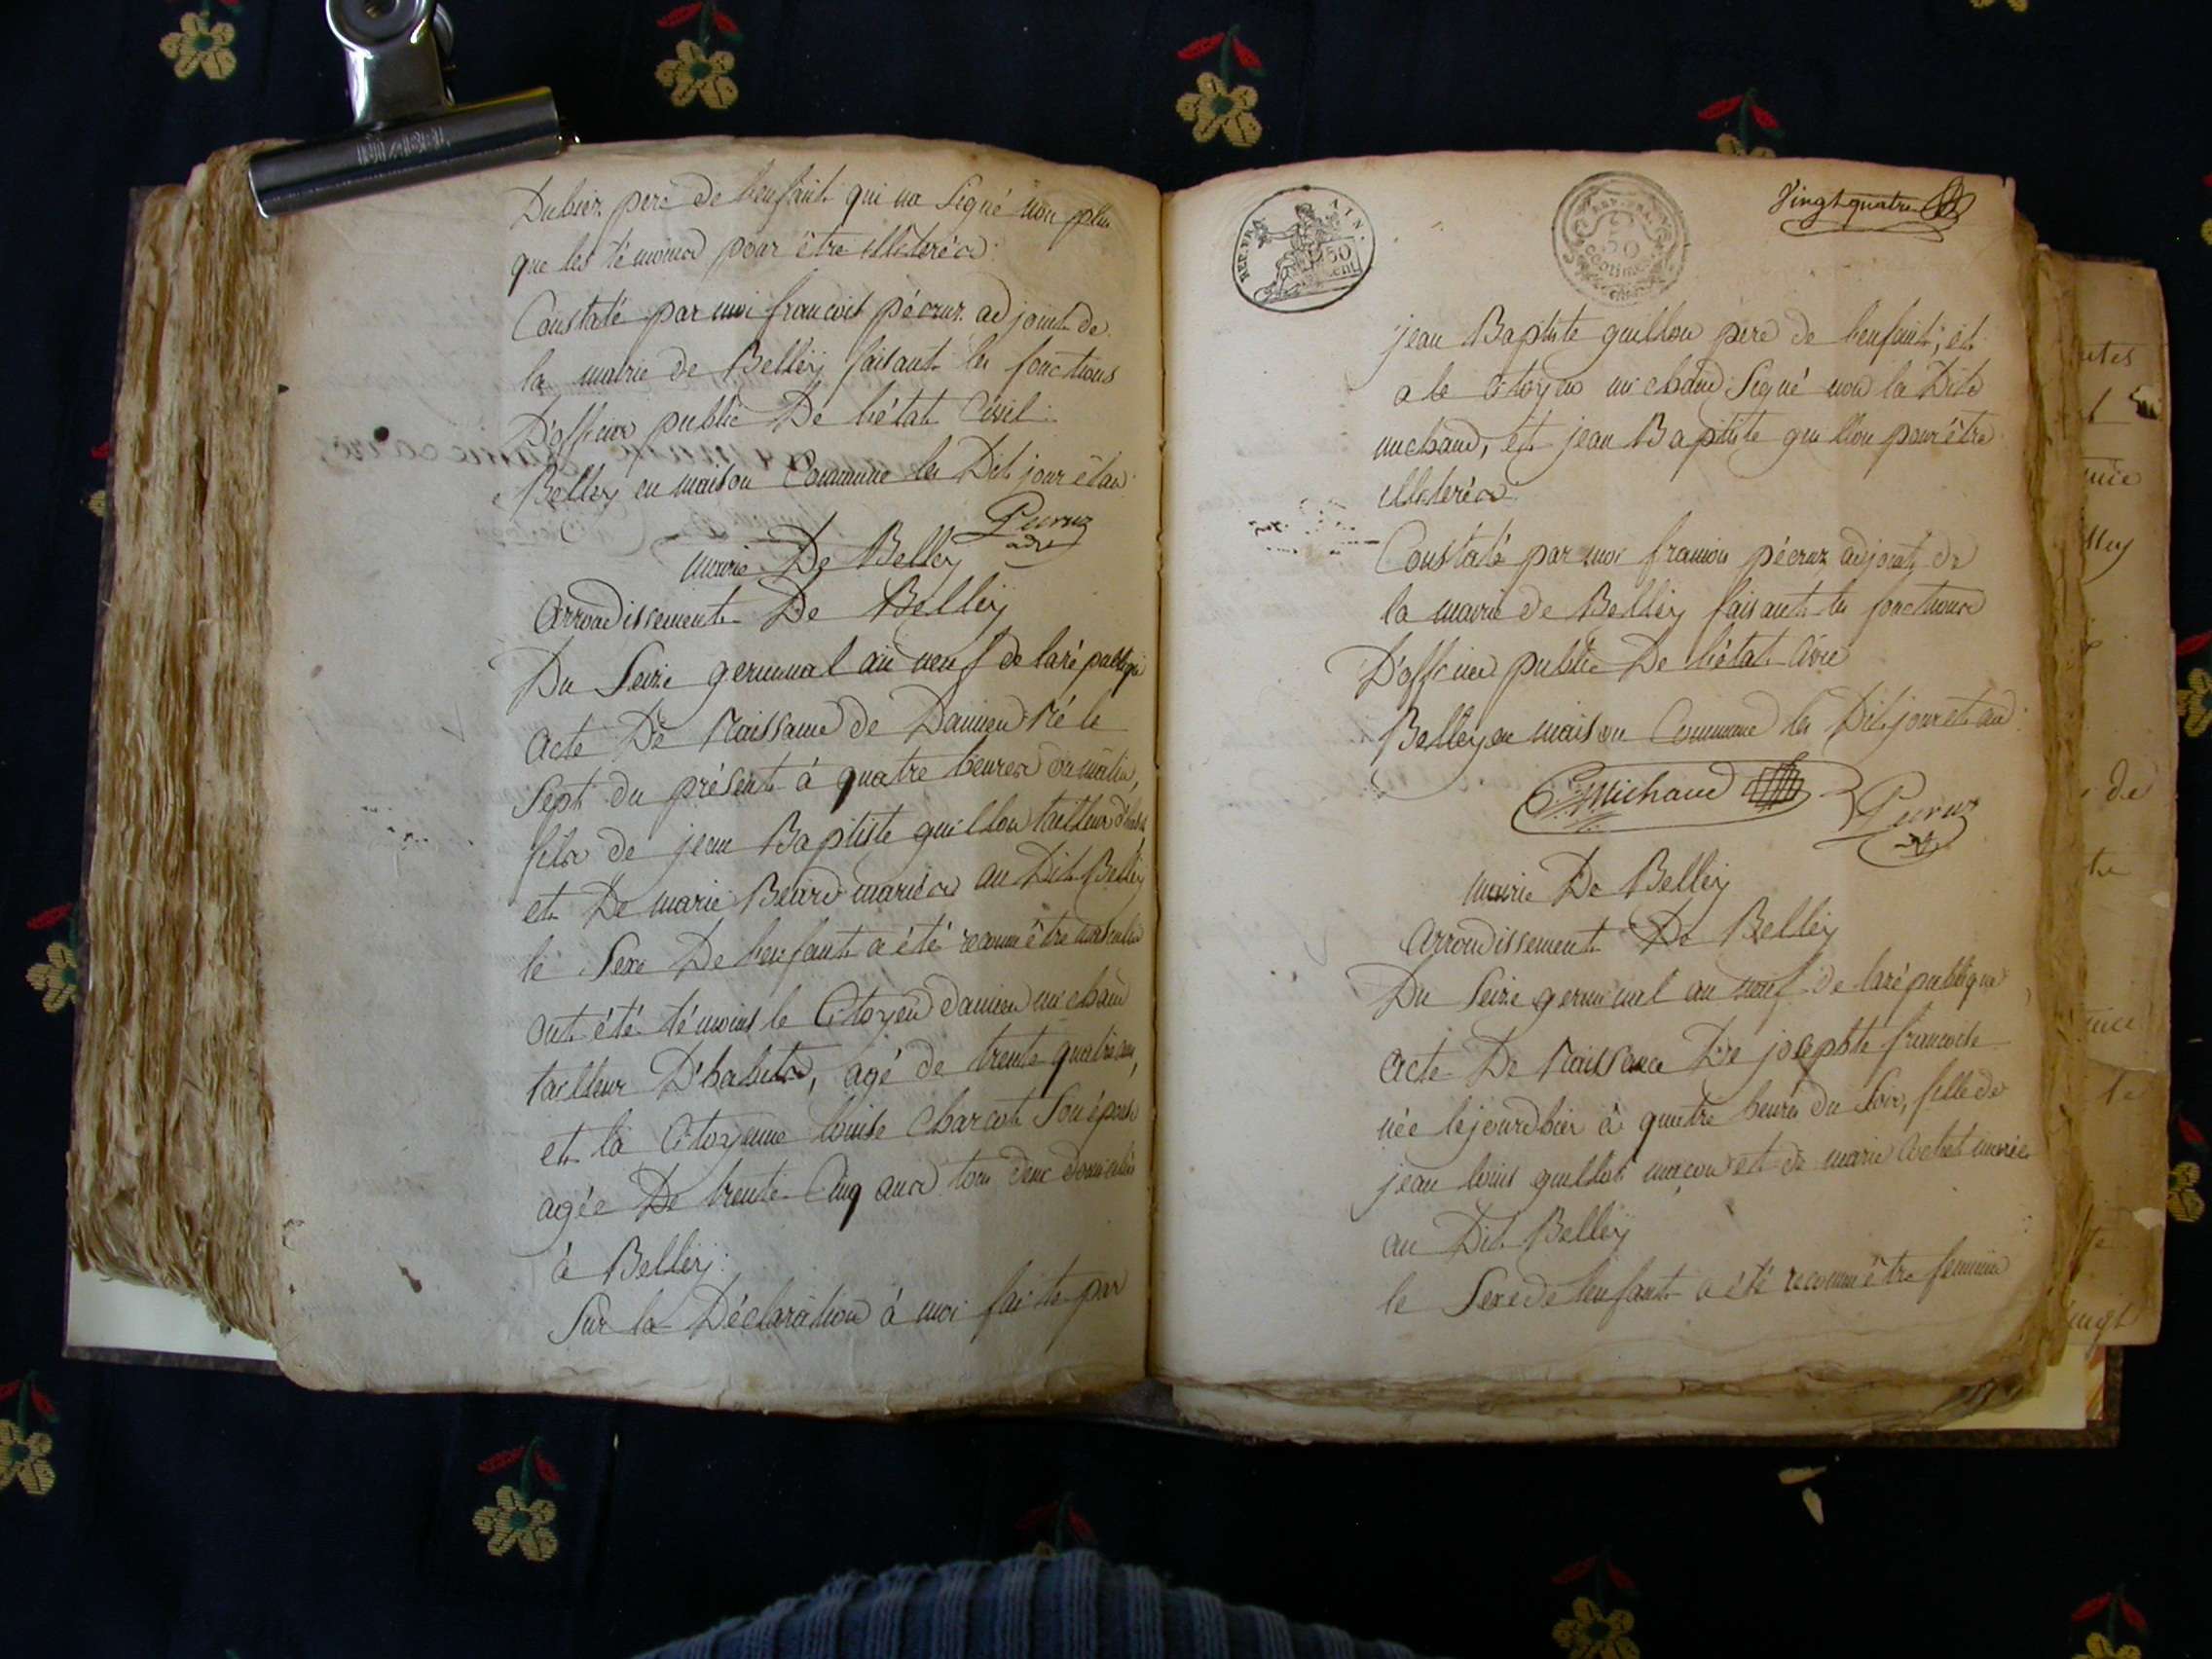 Dubiez pere de l'enfant qui na Signé non plus
que les témoins pour être illeterés
Constaté par moi francois pécruz adjoint de
la mairie de Belley faisant les fonctions
D'officier public De l'état Civil
Belley en maison Commune les Dit jour et an
Pecruz
mairie De Belley
arrondissement De Belley
Du Seize germinal an neuf de la république
acte De Naissance de Damien Né le
Sept du présent à quatre heures du matin,
fils de jean Baptiste guillon tailleur d'habits
et De marie mariés au Dit Belley
le Sexe De l'enfant a été reconnu être masculin
ont été témoins le Citoyen damien michaud
tailleur D'habits, agé de trente quatre ans,
et la Citoyenne louise Charcot Son épouse
agée De trente Cinq ans tous deux domiciliés
à Belley
Sur la Déclaration à moi faite par
REP. FRA. AIN.
50 cent
REP. FRA.
50
centimes
Vingt quatre
jean Baptiste guillon pere de l'enfant, et
a le citoyen michaud Signé non la Dite
michaud, et jean Baptiste guillon pour être
illeterés
Constaté par moi francois pécruz adjoint de
la mairie de Belley faisant les fonctions
D'officier public De l'état Civil
Belley en maison Commune les Dit jour et an
Michaud
Pecruz
mairie De Belley
arrondissement De Belley
Du Seize germinal an neuf de la république
acte De Naissance De josephte francoise
née le jour d'hier à quatre heures du Soir, fille de
jean louis guillot maçon et de marie mariés
au Dit Belley
le Sexe de l'enfant a été reconnu être feminin